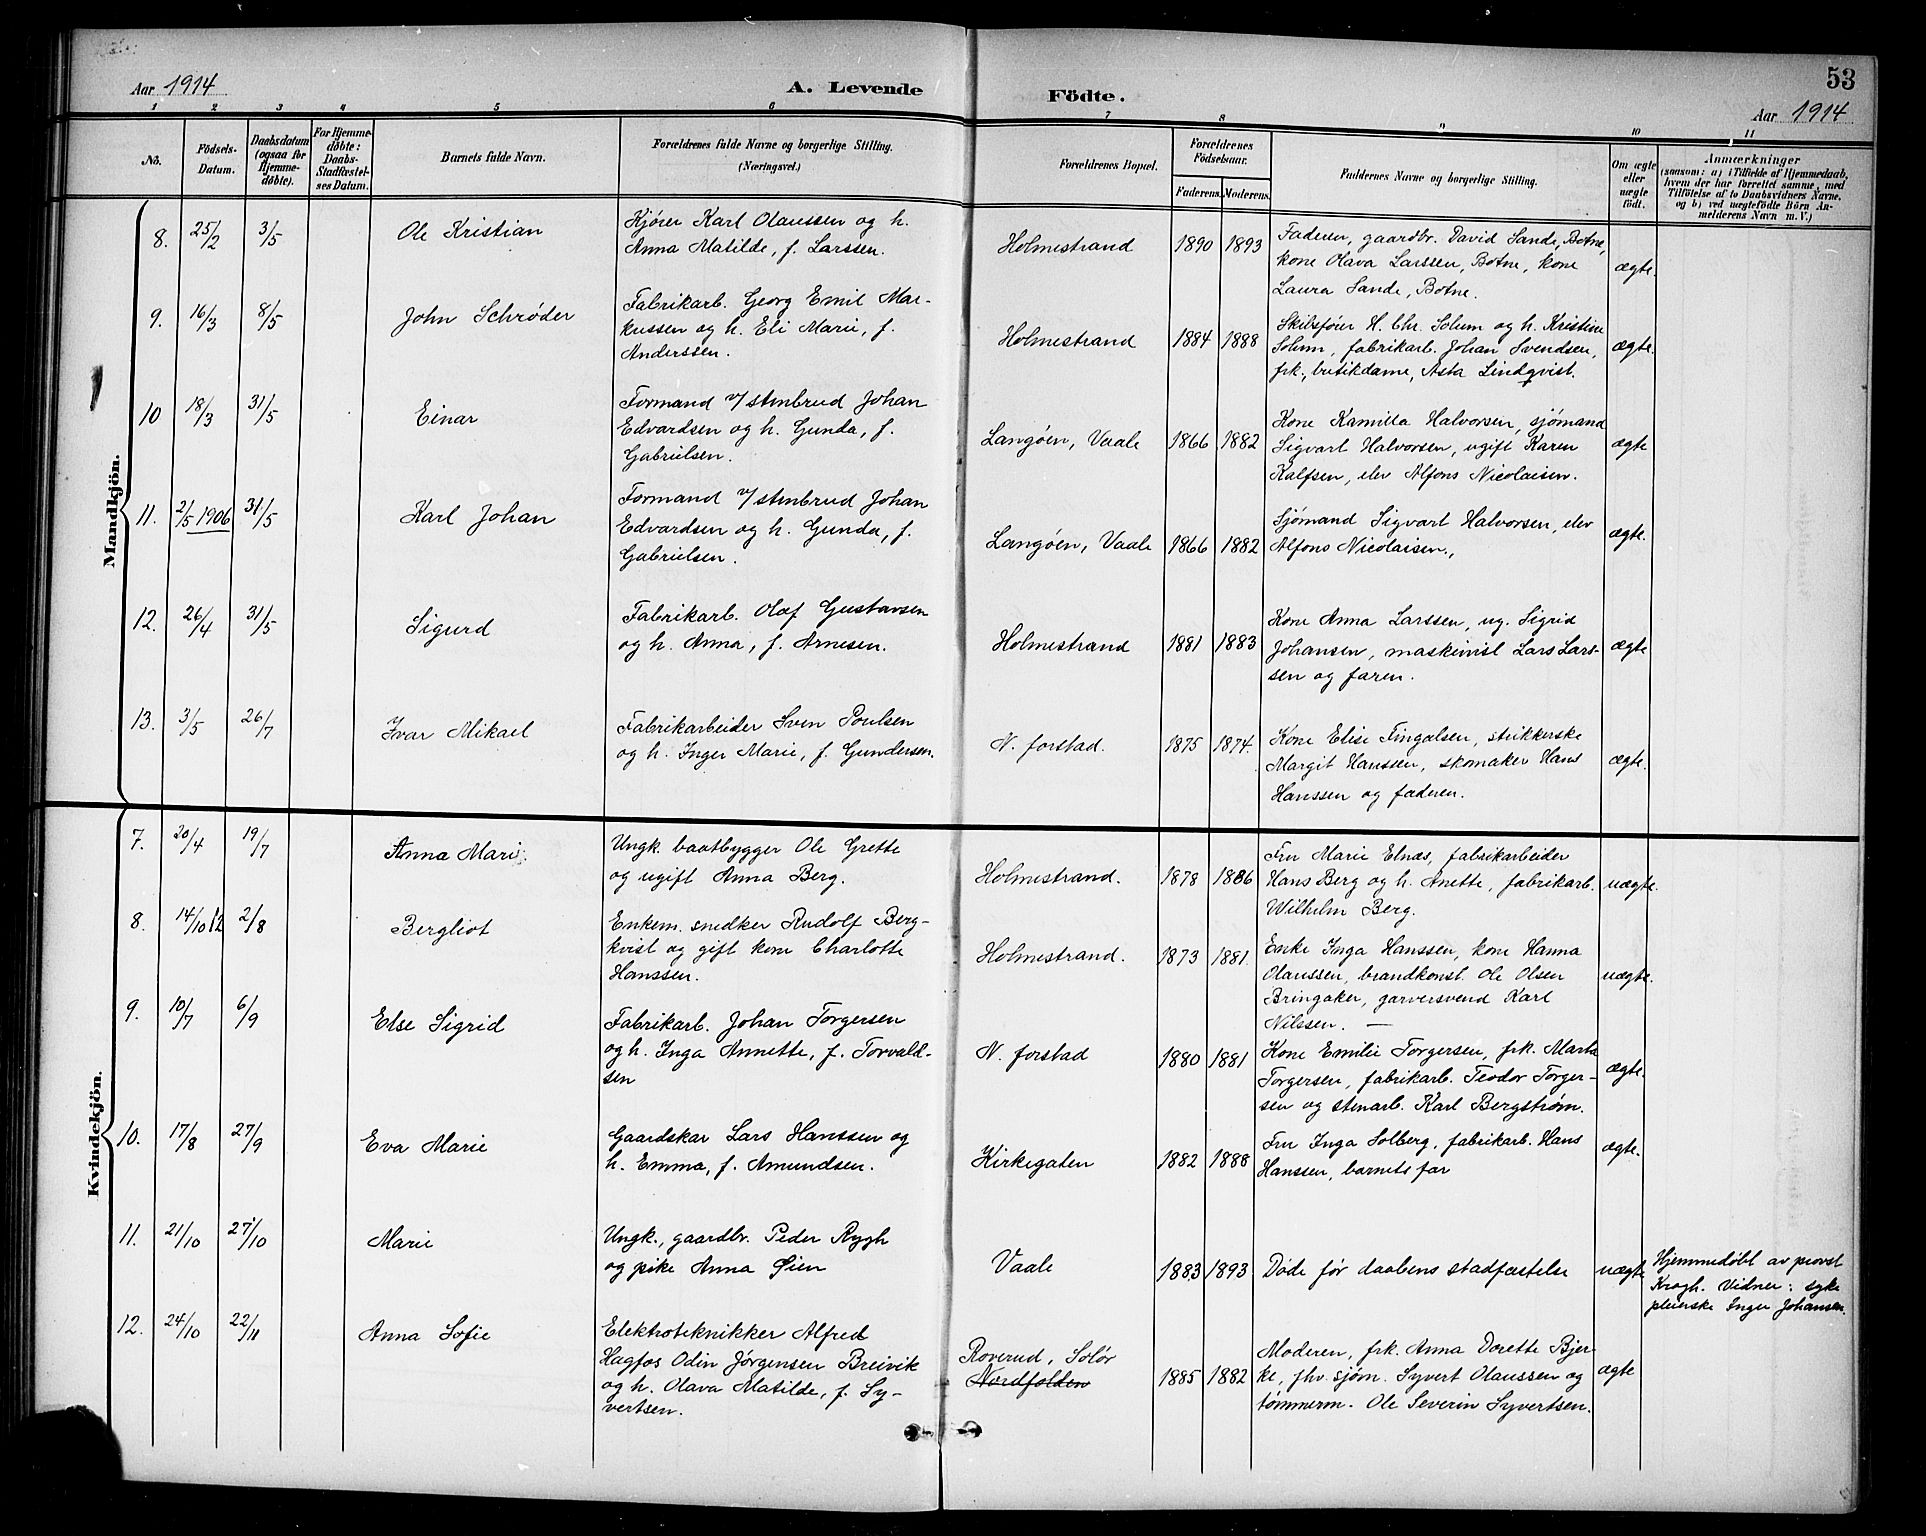 Aar 1914
A. Levende
Födte.
53
Aar 1914
1 2 3 4 5 6 7 8 9 10 11
No.
Födsels-
Datum.
Daabsdatum
(ogsaa for
Hjemme-
døbte).
For Hjemme-
døbte:
Daabs-
Stadfæstel-
ses Datum.
Barnets fulde Navn.
Forældrenes fulde Navne og borgerlige Stilling.
(Næringsvei.)
Forældrenes Bopæl.
Forældrenes
Födselsaar.
Faderens.
Moderens.
Faddernes Navne og borgerlige Stilling.
Om ægte
eller
uægte
født.
Anmærkninger
(saasom: a) i Tilfælde af Hjemmedaab,
hvem der har forrettet samme, med
Tilføielse af to Daabsvidners Navne,
og b) ved uægtefødte Börn An-
melderens Navn m. V.)
Mandkjön.
8. 25/2 3/5 Ole Kristian
Kjører Karl Olaussen og h.
Anna Matilde, f. Larssen.
Holmestrand 1890 1893
Faderen, gaardbr. David Sande, Botne,
kone Olava Larssen, Botne, kone
Laura Sande, Botne.
ægte.
9. 16/3 8/5 John Schrøder
Fabrikarb. Georg Emil Mar-
kussen og h. Eli Marie, f.
Anderssen.
Holmestrand 1884 1888
Skibsfører H. Chr. Solum og h. Kristine
Solum, fabrikarb. Johan Svendsen,
frk., butikdame, Asta Lindqvist.
ægte.
10 18/3 31/5 Einar
Formand v/ stenbrud Johan
Edvardsen og h. Gunda, f.
Gabrielsen.
Langøen, Vaale 1866 1882
Kone Kamilla Halvorsen, sjømand
Sigvart Halvorsen, ugift Karen
Kalfsen, elev Alfons Nicolaisen.
ægte
11. 2/5 1906 31/5 Karl Johan
Formand v/ stenbrud Johan
Edvardsen og h. Gunda, f.
Gabrielsen.
Langøen, Vaale 1866 1882
Sjømand Sigvart Halvorsen, elev
Alfons Nicolaisen.,
ægte.
12. 26/4 31/5 Sigurd
Fabrikarb. Olaf Gustavsen
og h. Anna, f. Arnesen.
Holmestrand 1881 1883
Kone Anna Larssen, ug. Sigrid
Johansen, maskinist Lars Lars-
sen og faren.
ægte
13. 3/5 26/7 Ivar Mikael
Fabrikarbeider Sven Poulsen
og h. Inger Marie, f. Gundersen.
N. forstad. 1875 1874.
Kone Elise Fingalsen, strikkerske
Margit Hanssen, skomaker Hans
Hanssen og faderen.
ægte.
Kvindekjön.
7. 20/4 19/7 Anna Marie
Ungk. baatbygger Ole Grette
og ugift Anna Berg.
Holmestrand. 1878 1886
Fru Marie Elnæs, fabrikarbeider
Hans Berg og h. Anette, fabrikarb.
Wilhelm Berg.
uægte.
8. 14/10 12 2/8 Bergliot
Enkem. snedker Rudolf Berg-
kvist og gift kone Charlotte
Hanssen.
Holmestrand. 1873 1881.
Enke Inga Hanssen, kone Hanna
Olaussen, brandkonst. Ole Olsen
Bringaker, garversvend Karl
Nilssen. —
uægte.
9. 10/7 6/9 Else Sigrid
Fabrikarb. Johan Torgersen
og h. Inga Annette, f. Torvald-
sen
N. forstad 1880 1881
Kone Emilie Torgersen, frk. Marta
Torgersen, fabrikarb. Teodor Torger-
sen og stenarb. Karl Bergstrøm.
ægte.
10. 17/8 27/9 Eva Marie
Gaardskar Lars Hanssen og
h. Emma, f. Amundsen.
Kirkegaten 1882 1888
Fru Inga Solberg, fabrikarb. Hans
Hanssen, barnets far
ægte.
11. 21/10 27/10 Marie
Ungk., gaardbr. Peder Rygh
og pike Anna Øien
Vaale 1883 1893
Døde før daabens stadfæstelse
uægte
Hjemmedøbt av provst
Krogh. Vidner: syke
pleierske Inger Johansen.
12. 24/10 22/11 Anna Sofie
Elektroteknikker Alfred
Hagfos Odin Jørgensen Breivik
og h. Olava Matilde, f. Sy-
vertsen.
Roverud, Solør
Nordfolden
1885 1882
Moderen, frk. Anna Dorette Bjer-
ke, fhv. sjøm. Syvert Olaussen og
tømmerm. Ole Severin Syvertsen.
ægte